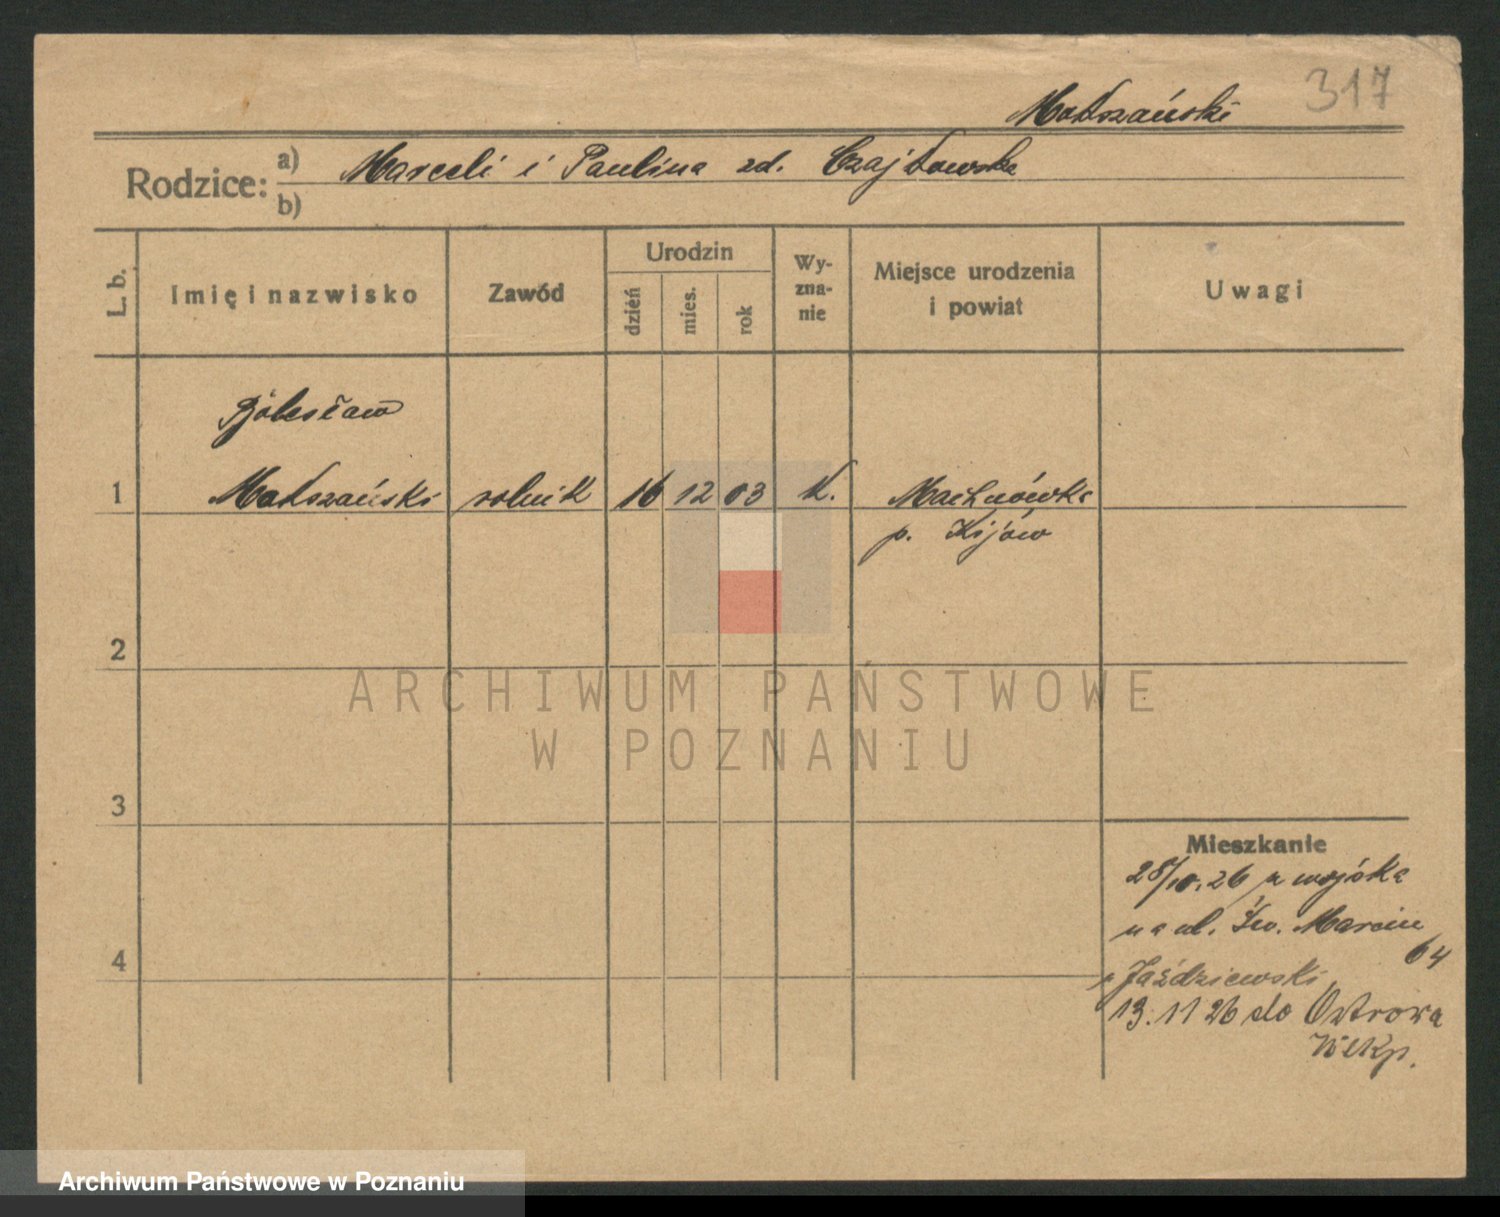 317
Matszański
Rodzice: a) Marceli i Paulina zd. Czajkowska
b)
L. b. Imię i nazwisko Zawód Urodzin dzień mies. rok Wy-zna-nie Miejsce urodzenia i powiat Uwagi
Bolesław
1 Matszański rolnik 16 12 03 k. Machnówka
p. Kijów
2
ARCHIWUM PAŃSTWOWE
W POZNANIU
3
Mieszkanie
28/10.26 z wojska
na ul. Św. Marcin
64
4
p Jaździewski
13.11 26 do Ostrowa
Wlkp.
Archiwum Państwowe w Poznaniu